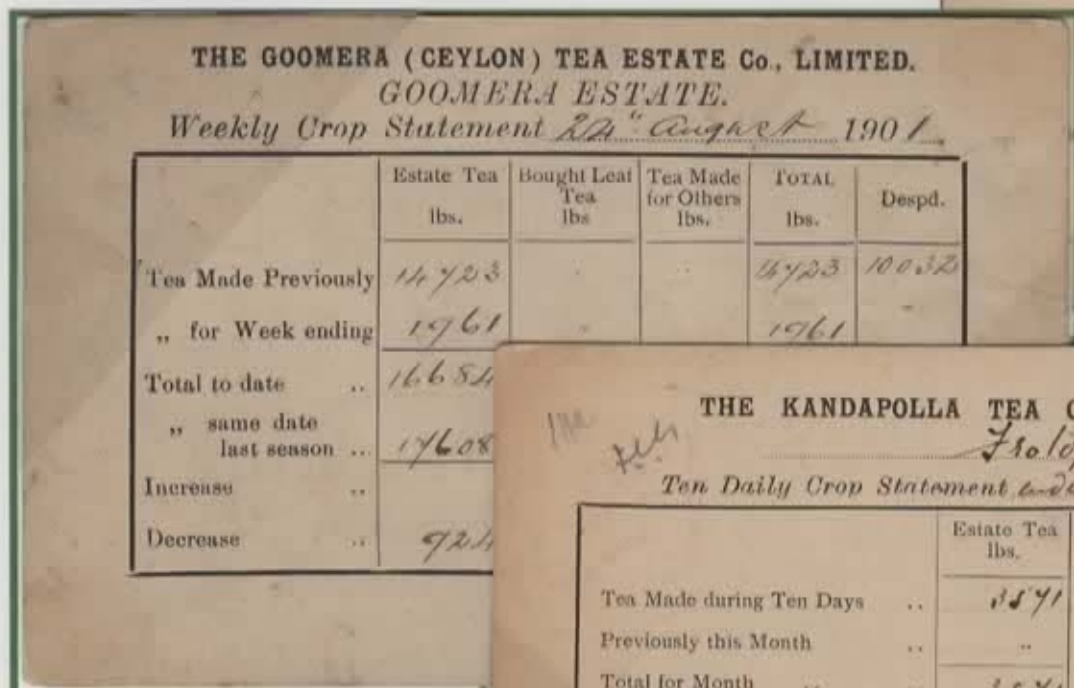 THE GOOMERA (CEYLON) TEA ESTATE Co., LIMITED.
GOOMERA ESTATE.
Weekly Crop Statement 24" August 1901
Estate Tea lbs. Bought Leaf Tea lbs Tea Made for Others lbs. TOTAL lbs. Despd.
Tea Made Previously 14723 14723 10032
„ for Week ending 1961 1961
Total to date .. 16684
„ same date
last season ... 17608
Increase ..
Decrease .. 924
THE KANDAPOLLA TEA
Ten Daily Crop Statement
Estate Tea
lbs.
Tea Made during Ten Days .. 3571
Previously this Month .. ..
Total for Month 3571